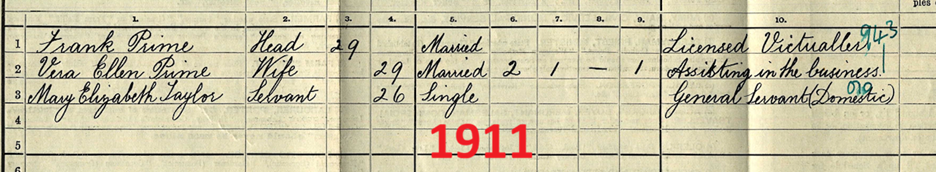 ples of
1. 2. 3. 4. 5. 6. 7. 8. 9. 10.
1 Frank Prime Head 29 Married Licensed Victualler 943
2 Vera Ellen Prime Wife 29 Married 2 1 — 1 Assisting in the business. 1
3 Mary Elizabeth Taylor Servant 26 Single General Servant (Domestic)
4
5
1911
6